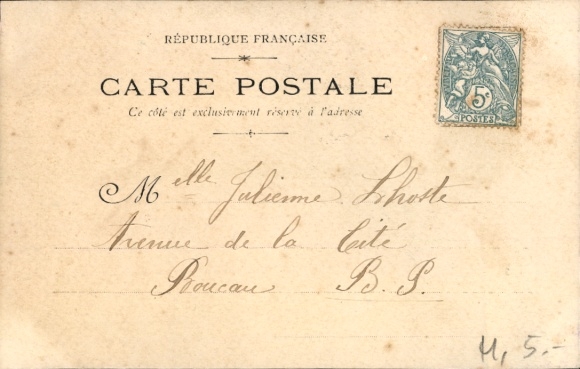 RÉPUBLIQUE FRANÇAISE
CARTE POSTALE
Ce côté est exclusivement réservé à l'adresse
5c
POSTES
Melle Julienne Lhoste
Avenue de la Cité
Boucau B. P.
H, 5.-